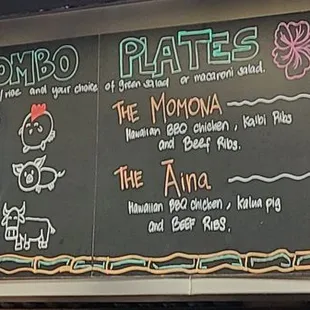 OMBO PLATES
/rice and your choice of green salad or macaroni salad.
THE MOMONA
Hawaiian BBQ chicken, Kalbi Ribs
and Beef Ribs.
THE Āina
Hawaiian BBQ chicken, Kalua pig
and BEEF RIBS.